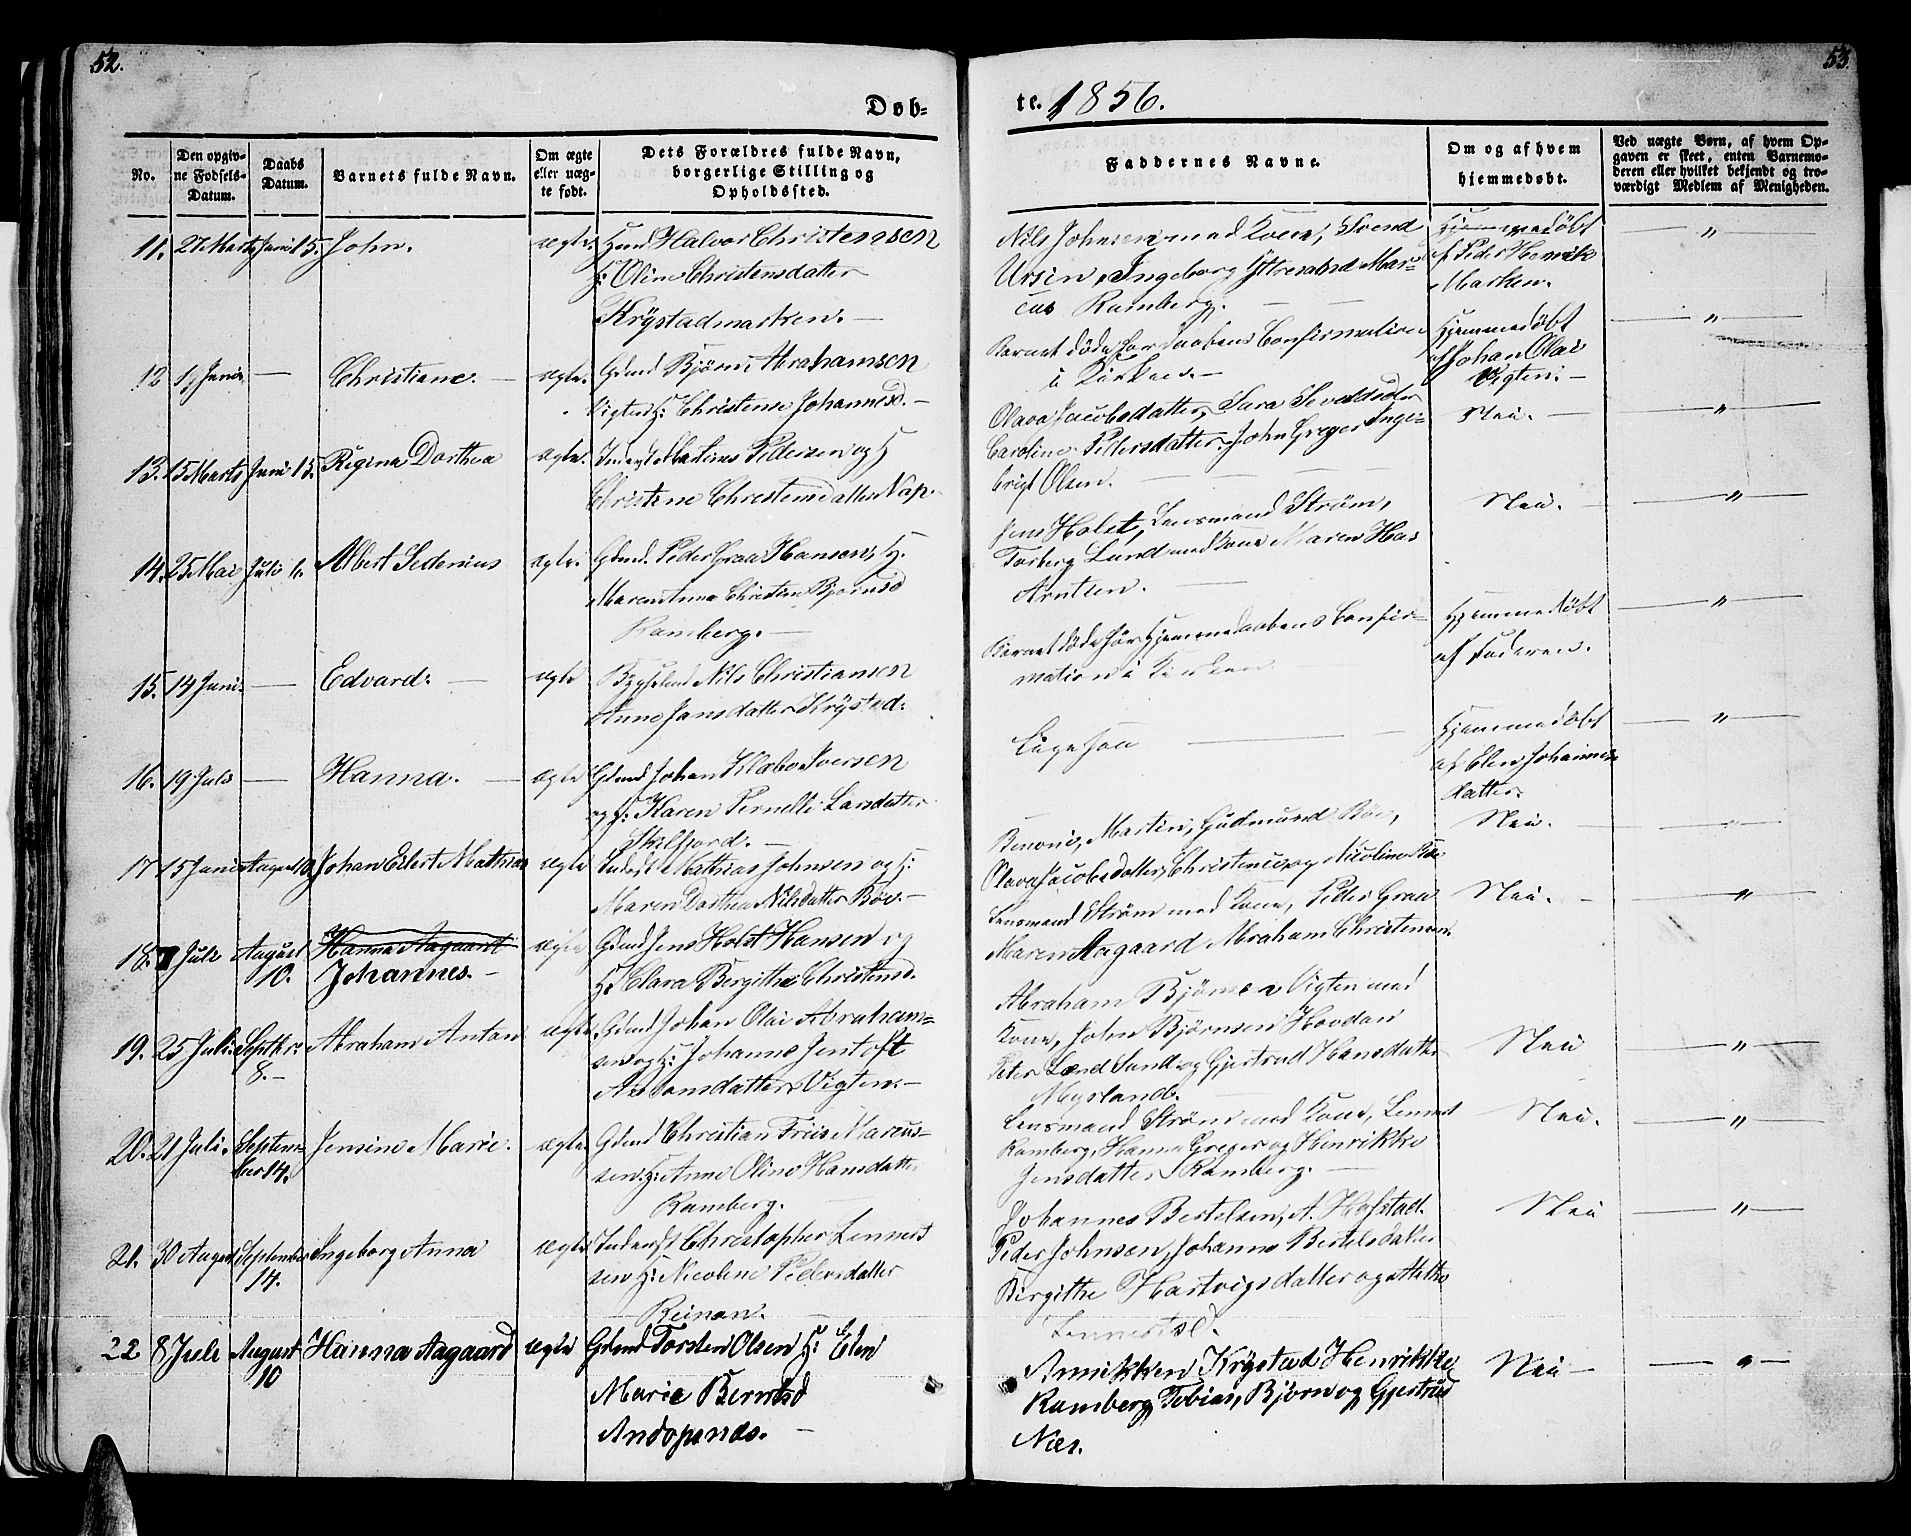 52.
53.
Døb-
te. 1856.
No.
Den opgiv-
ne Fødsels-
Datum.
Daabs
Datum.
Barnets fulde Navn.
Om ægte
eller uæg-
te født.
Dets Forældres fulde Navn,
borgerlige Stilling og
Opholdssted.
Faddernes Navne.
Om og af hvem
hjemmedøbt.
Ved uægte Børn, af hvem Op-
gaven er skeet, enten Barnemo-
deren eller hvilket bekjendt og tro-
værdigt Medlem af Menigheden.
11. 27 Marts Juni 15. John. ægte Huusmd Halvor Christensen
H: Oline Christensdatter
Krystadmarken. —
Nils Johnsen med Kone, Svend
Ursin, Ingeborg Mar-
cus Ramberg. —
Hjemmedøbt
af Peder Henrik
Marken.
— " —
12 1. Juni — Christiane. — ægte. Gdmd Bjørn Abrahamsen
Vigten H: Christense Johannesd. —
Barnet døde før Daabens Confirmation
i Kirken. —
Hjemmedøbt
af Johan Olai
Vigten. —
— " —
13. 15 Marts Juni 15. Regina Dorthea ægte. Inderst Martinus Pedersen og H
Christene Christensdatter Nap.
Olava Jacobsdatter, Sara Sevaldsdtr
Caroline Pedersdatter, John Greger Inge-
brigt Olsen. —
Nei. —
— " —
14. 25 Mai Juli 6. Albert Sedenius ægte. Gdmd. Peder Graa Hansen, H.
Maren Anna Christine Bjørnsd
Ramberg. —
Jens Holst, Lensmand Strøm,
Torberg Lund med Kone Maren Has
Arntsen. —
Nei. —
— " —
15. 14 Juni. — Edvard. — ægte Bygselmd Nils Christiansen
Anne Jansdatter Krystad.
Barnet døde før Hjemmedaabens Confir-
mation i Kirken
Hjemmedøbt
af Faderen.
— " —
16. 19 Juli — Hanna. — ægte Gdmd Johan Klæbo Iversen
og H: Karen Pernelle Larsdatter
Skelfjord. —
Ligesaa —
Hjemmedøbt
af Elen Johannes-
datter.
— " —
17 15 Juni August 10 Johan Eilert Mathias ægte Inderst Mathias Johnsen og H:
Maren Dorthea Nilsdatter Bøe. —
Benoni, Martin, Gudmund Bøe,
Olava Jacobsdatter, Christence og Nicoline
Nei.
— " —
18. 7 Juli August
10. Hanna Aagaard
Johannes. — ægte Gdmd Jens Holst Hansen og
H: Clara Bergithe Christensd.
Lensmand Strøm med Kone, Peder Graa
Maren Aagaard Abraham Christensen.
Nei. —
— " —
19. 25 Juli Septbr:
8. — Abraham Anton ægte. Gdmd Johan Olai Abraham-
sen og H: Johanne Jentoft
Antonsdatter Vigten. —
Abraham Bjørnsen Vigten med
Kone, John Bjørnsen Hovdan
Peter Lænd Sund og Gjertrud Hansdatter
Myrland. —
Nei
— " —
20. 21 Juli. Septem-
ber 14. Jensine Marie. ægte. Gdmd Christian Friis Marcus-
sen. H: Anne Oline Hansdatter
Ramberg. —
Lensmand Strøm med Kone, Lennert
Ramberg, Hanna Greger og Henrikke
Jensdatter Ramberg. —
Nei.
— " —
21. 30 August September
14. Ingeborg Anna ægte. Inderst Christopher Lennert
sen H: Nicoline Pedersdatter
Reinan. —
Johannes Bertelsen, A. Hofstad.
Peder Johnsen, Johanne Bertelsdatter
Birgithe Hartvigsdatter og Mette
Lennertsd.
Nei
— " —
22 8 Juli August
10 Hanna Aagaard ægte Gdmd Torsten Olsen H: Elen
Marie Berntsd
Andopsnæs. —
Annikken Krystad Henrikke
Ramberg, Tobias, Bjørn og Gjertrud
Næs.
Nei —
— " —